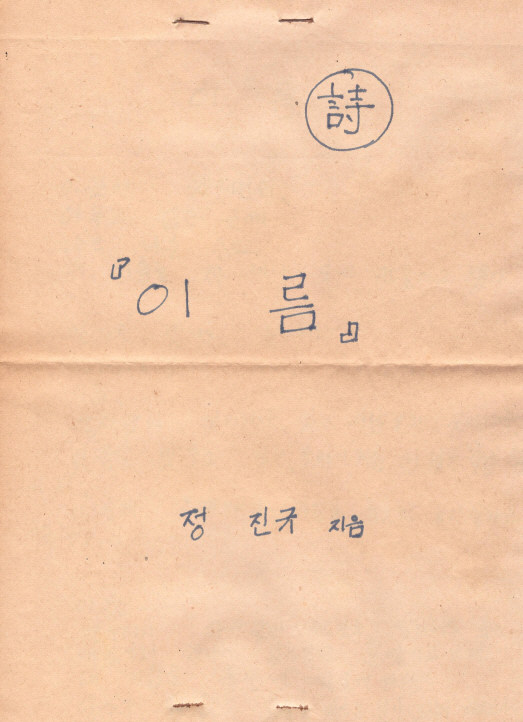 詩
『이름』
정 진규 지음